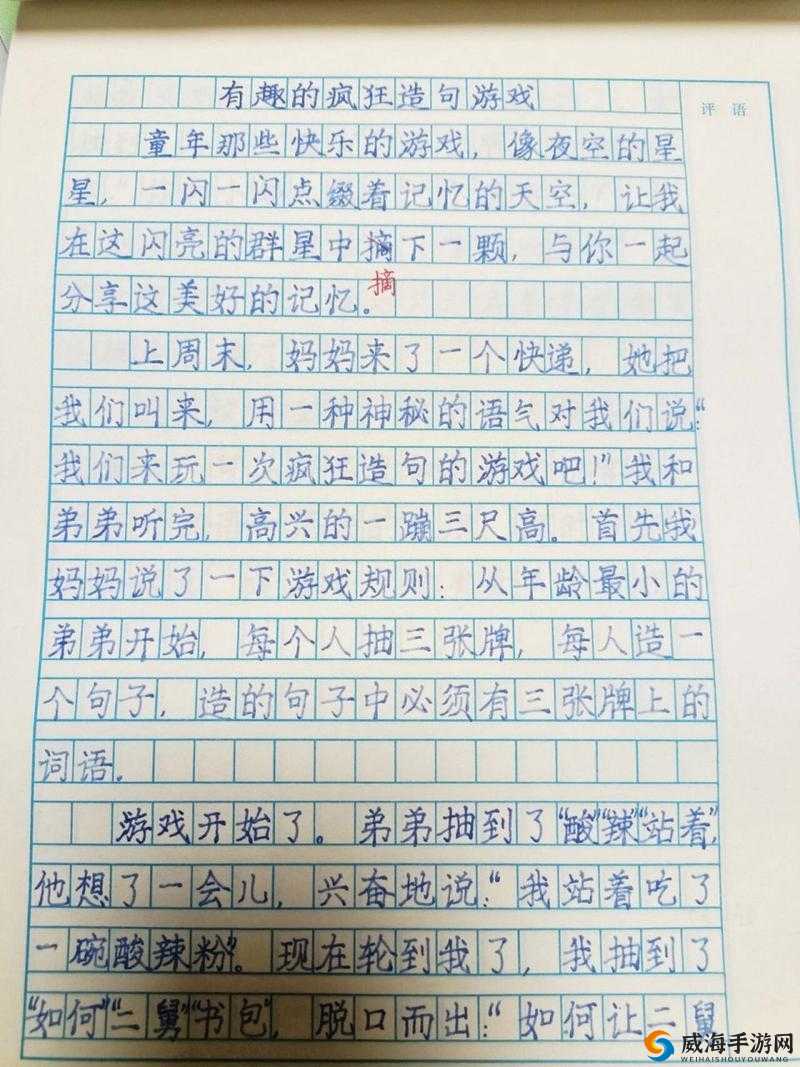 有趣的疯狂造句游戏
评语
童年那些快乐的游戏，像夜空的星
星，一闪一闪点缀着记忆的天空，让我
在这闪亮的群星中摘下一颗，与你一起
分享这美好的记忆。
摘
上周末，妈妈来了一个快递，她把
我们叫来，用一种神秘的语气对我们说：“
我们来玩一次疯狂造句的游戏吧！”我和
弟弟听完，高兴的一蹦三尺高。首先我
妈妈说了一下游戏规则：从年龄最小的
弟弟开始，每个人抽三张牌，每人造一
个句子，造的句子中必须有三张牌上的
词语。
游戏开始了。弟弟抽到了“酸”“辣”“站着”，
他想了一会儿，兴奋地说：“我站着吃了
一碗酸辣粉”。现在轮到我了，我抽到了
“如何”“二舅”“书包”，脱口而出：“如何让二舅
威海手游网
WEIHAISHOUYOUWANG